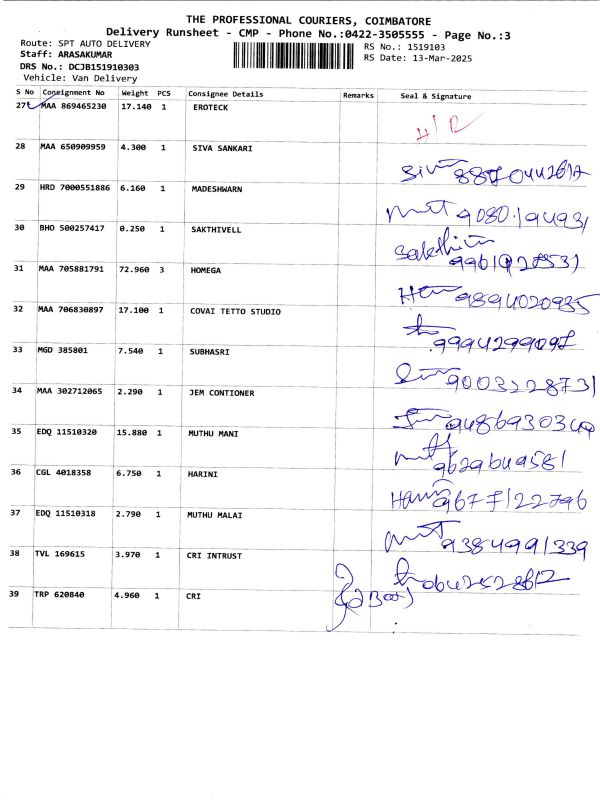 THE PROFESSIONAL COURIERS, COIMBATORE
Delivery Runsheet - CMP - Phone No.:0422-3505555 - Page No.:3
Route: SPT AUTO DELIVERY
RS No.: 1519103
Staff: ARASAKUMAR
RS Date: 13-Mar-2025
DRS No.: DCJB151910303
Vehicle: Van Delivery
S No Consignment No Weight PCS Consignee Details Remarks Seal & Signature
27 MAA 869465230 17.140 1 EROTECK
28 MAA 650909959 4.300 1 SIVA SANKARI
29 HRD 7000551886 6.160 1 MADESHWARN
30 BHO 500257417 0.250 1 SAKTHIVELL
31 MAA 705881791 72.960 3 HOMEGA
32 MAA 706830897 17.100 1 COVAI TETTO STUDIO 9894020985
33 MGD 385801 7.540 1 SUBHASRI
34 MAA 302712065 2.290 1 JEM CONTIONER 9003228731
35 EDQ 11510320 15.880 1 MUTHU MANI
36 CGL 4018358 6.750 1 HARINI 9629649581
37 EDQ 11510318 2.790 1 MUTHU MALAI 9677122796
38 TVL 169615 3.970 1 CRI INTRUST 9384991339
39 TRP 620840 4.960 1 CRI